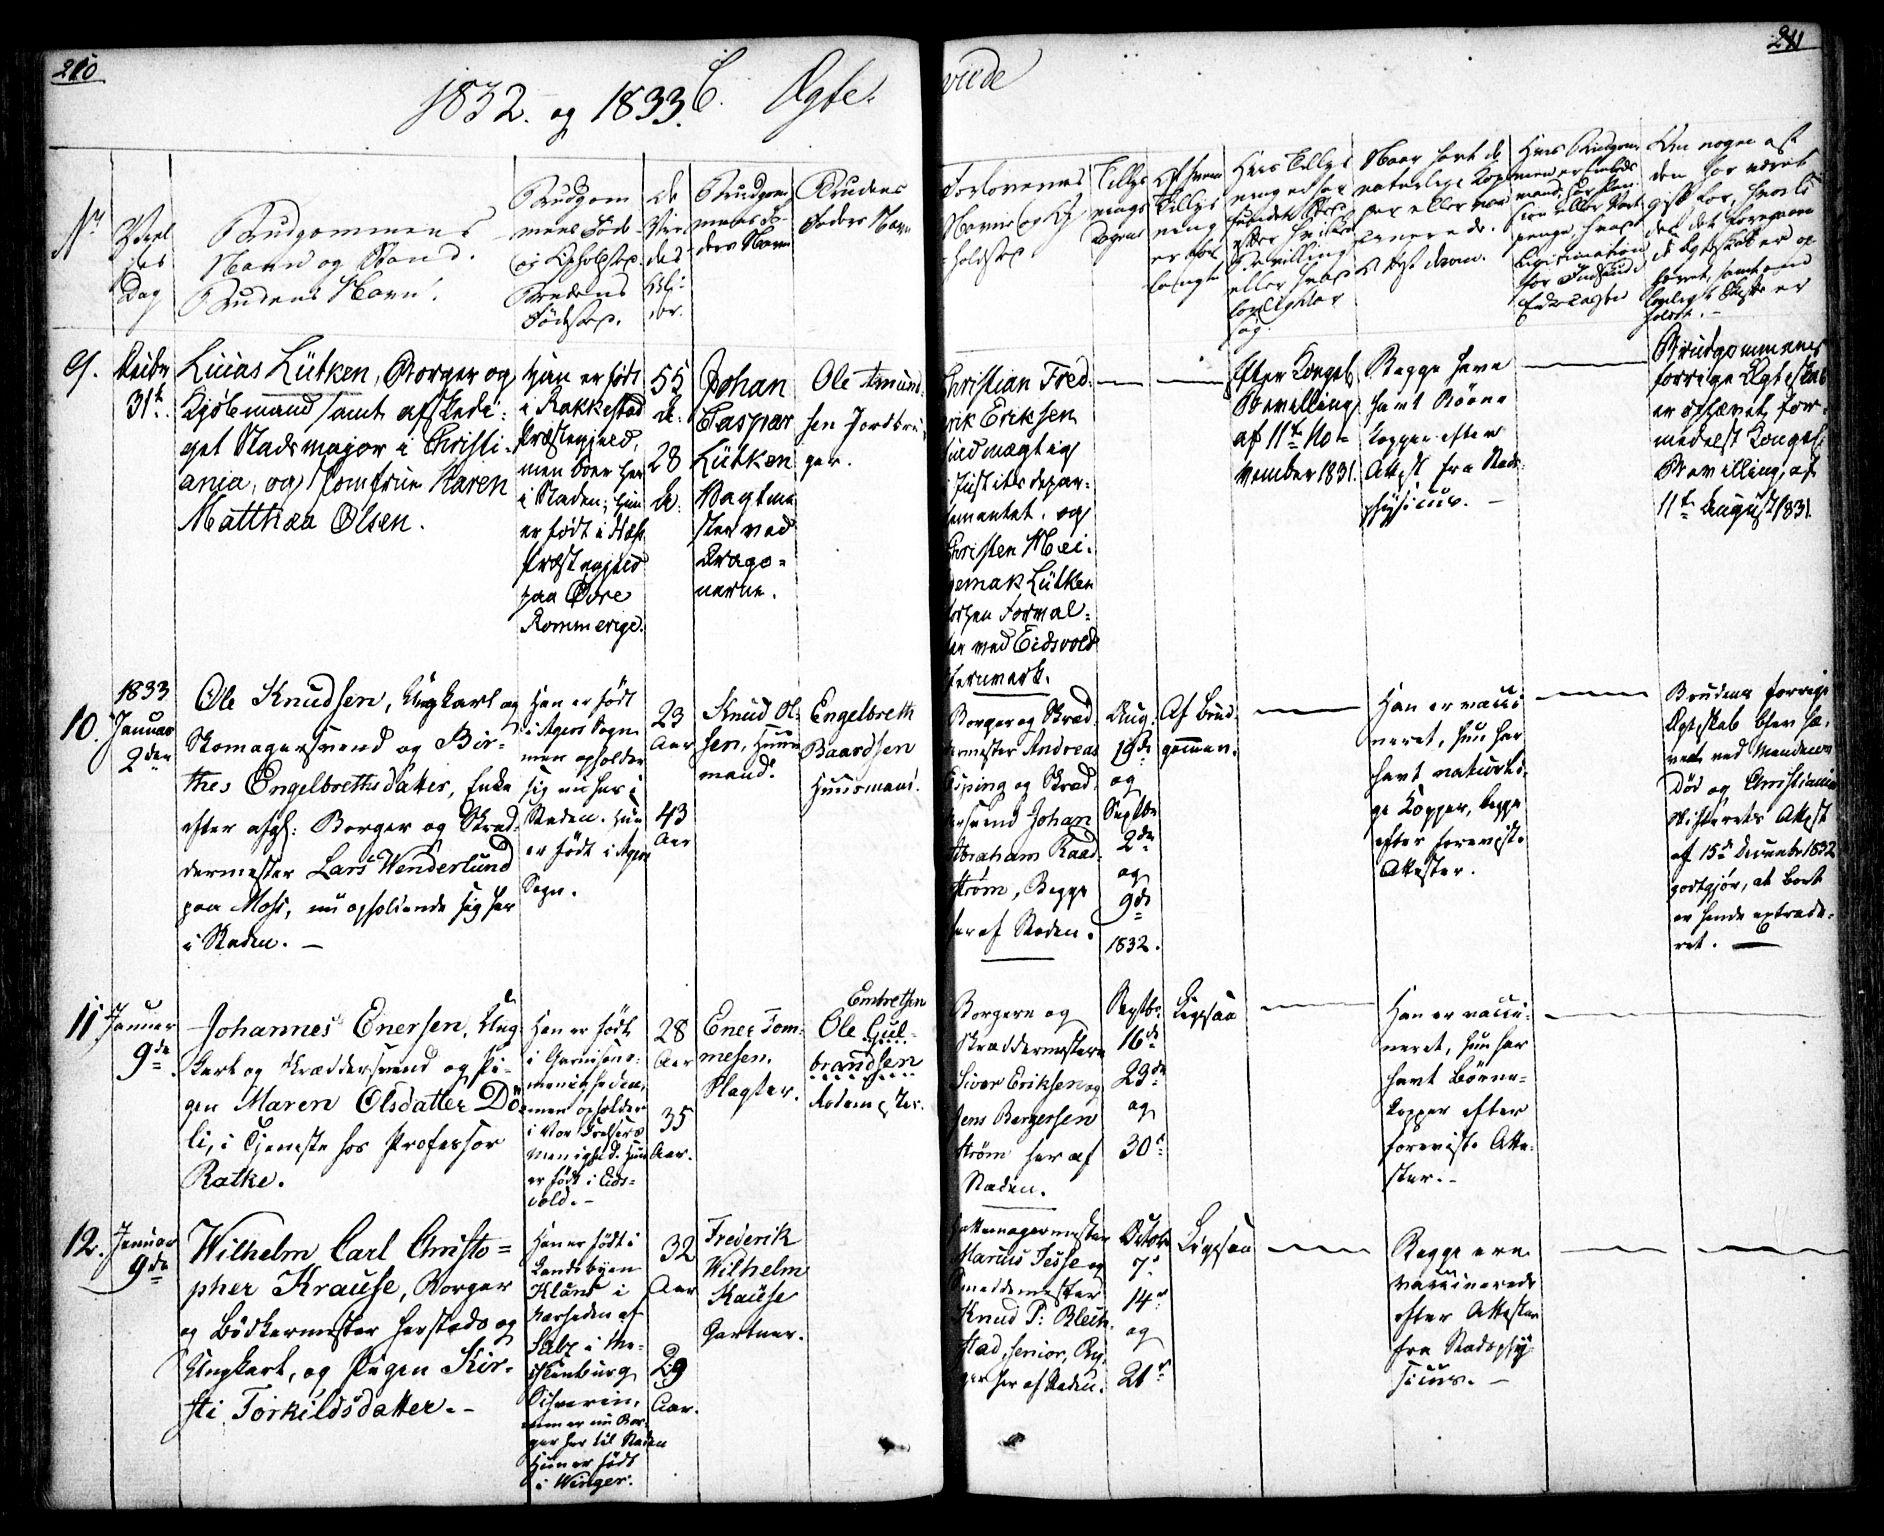 210
211
1832. og 1833. C. Ægte-
viede
Nr
Vielses
Dag
Brudgommens
Navn og Stand.
Brudens Navn.
Brudgom
mens Føde-
og Opholdsted
Brudens
Fødested.
de
Vie
des
Al-
der.
Brudgom
mens Fa-
ders Navn
Brudens
Faders Navn
Forlovernes
Navne og Op
holdsted
Tillys
nings
dagene
Af hvem
Tillys
ning
er for
langt
Naar havt de
naturlige Kop
per eller vac
cinerede.
Attest derom.
9.
Decbr
31te
Lucas Lütken, Borger og
Kjøbmand samt afskedi-
get Stadsmajor i Christi-
ania, og Jomfrue Karen
Matthea Olsen.
Han er født
i Rakkestad
Præstegjeld,
men boer her
i Staden; hun
er født i Næs
Præstegjeld
paa Øvre
Rommerige.
55
A:
28
A:
Johan
Caspar
Lütken
Vagtme
ster ved
Drago-
nerne.
Ole Amund-
sen Jordbru-
ger.
Christian Fred-
rik Eriksen
Fuldmægtig
i Justitsdepar-
tementet. og
Christen Mei-
demak Lütken
forhen Forval-
ter ved Eidsvolds
Jernverk.
Efter Kongel.
Bevilling
af 11te No-
vember 1831.
Begge have
havt Børne
kopper efter
Attest fra Stads-
physicus. –
Brudgommens
forrige Ægteskab
er ophævet for-
medelst Kongel:
Bevilling af
11te August 1831
1833
10.
Januar
2den
Ole Knudsen, Ungkarl og
Skomagersvend og Bir-
thes Engelbrethsdatter, Enke
efter afg: Borger og Skræd-
dermester Lars Wenderlund
paa Moss, nu opholdende sig her
i Staden. –
Han er født
i Agers Sogn
men opholder
sig nu her i
Staden. Hun
er født i Agers
Sogn.
23
Aar
43
Aar
Knud Ol-
sen, Huus
mand.
Engelbreth
Baardsen
Huusmand.
Borger og Skræd-
dermester Andreas
Esping og Skræd-
dersvend Johan
Abraham Raad-
strøm, Begge
her af Staden.
Aug.
19de
og
Septbr
2den
og
9de
1832.
Af Brud-
gommen.
Han er vacci
neret, hun har
havt naturli-
ge Kopper, begge
efter foreviste
Attester.
Brudens forrige
Ægteskab blev hæ-
vet ved Mandens
Død og Christiania
Skifterets Attest
af 15de December 1832
godtgjør, at Boet
er hende extrade-
ret. –
11.
Januar
9de
Johannes Enersen, Ung
karl og Skræddersvend og Pi-
gen Maren Olsdatter Dö-
li, i Tjeneste hos Professor
Ratke.
Han er født
i Garnisons-
menigheden,
men opholder
i Vor Frelsers
Menighed. Hun
er født i Eids-
vold. –
28
Aar
35
Aar.
Ener Tom-
mesen.
Slagter.
Embretsen
Ole Gul-
brandsen
Rodemester.
Borgere og
Skræddermestere
Siver Eriksen og
Jens Bergersen
Strøm her af
Staden.
Septbr.
16de
23de
og
30te
Ligesaa
Han er vacci-
neret, hun har
havt Børne-
kopper efter
foreviste Atte-
ster. –
12.
Januar
9de
Wilhelm Carl Christo-
pher Krause, Borger
og Bödkermester hersteds og
Ungkarl, og Pigen Kir-
sti Torkildsdatter. –
Han er født i
Landsbyen
i
Nærheden af
i Me-
klenburg
Schwerin,
men er nu Bor-
ger her til Staden
Hun er født
i Winger.
32
Aar
29
Aar.
Frederik
Wilhelm
Kause
Gartner.
Hattemagermester
Marcus Jesse og
Smeddemester
Knud P: Blech-
stad, senior, Bor-
ger her af Staden.
Octobr
7de
14de
og
21de
Ligesaa
Begge ere
vaccinerede
efter Attester
fra Stadsphy-
sicus. –